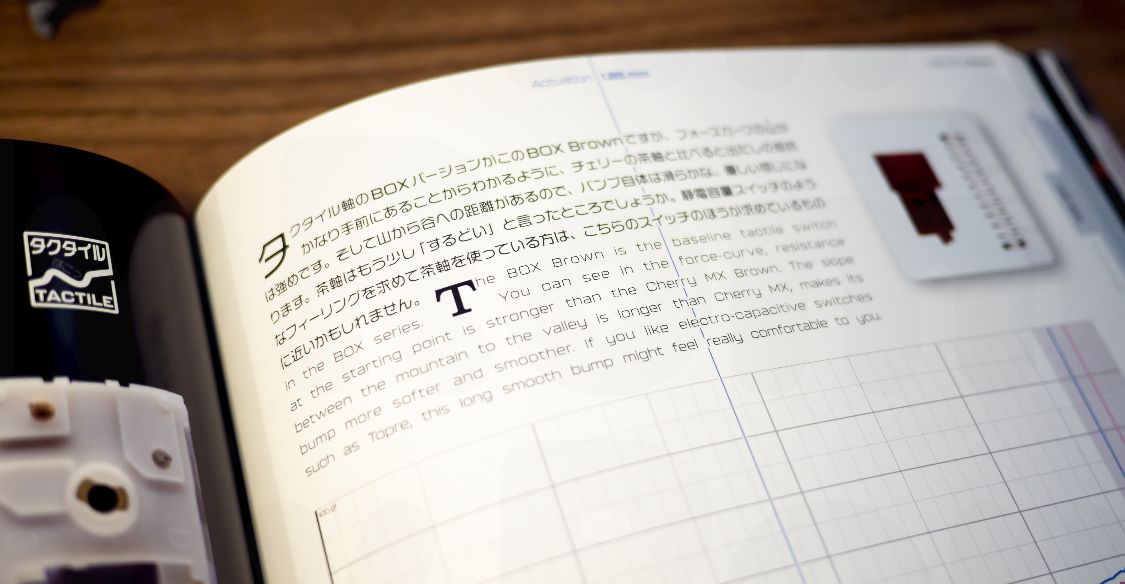 タクタイル
TACTILE
Actuation 1.85 mm
タクタイル軸のBOXバージョンがこのBOX Brownですが、フォースカーブの山が
かなり手前にあることからわかるように、チェリーの茶軸と比べると出だしの抵抗
は強めです。そして山から谷への距離があるので、バンプ自体は滑らかな、優しい感じにな
ります。茶軸はもう少し「するどい」と言ったところでしょうか。静電容量スイッチのよう
なフィーリングを求めて茶軸を使っている方は、こちらのスイッチのほうが求めているもの
に近いかもしれません。 The BOX Brown is the baseline tactile switch
in the BOX series. You can see in the force-curve, resistance
at the starting point is stronger than the Cherry MX Brown. The slope
between the mountain to the valley is longer than Cherry MX, makes its
bump more softer and smoother. If you like electro-capacitive switches
such as Topre, this long smooth bump might feel really comfortable to you.
100gf